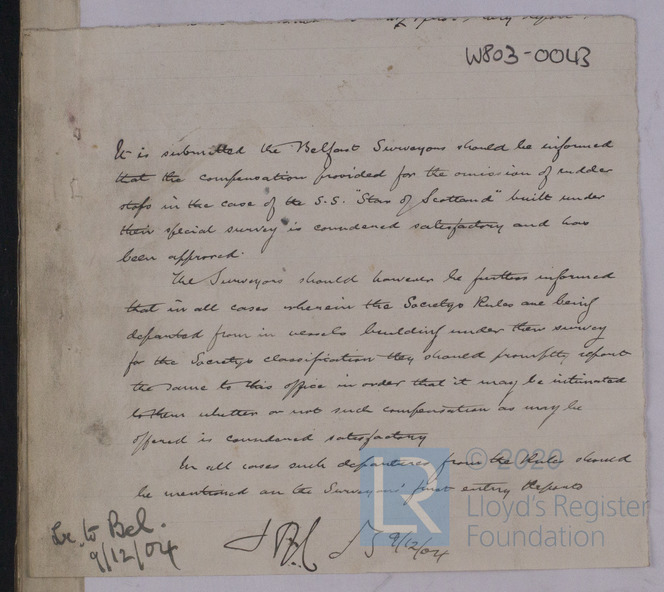 W803-0043
It is submitted the Belfast Surveyors should be informed
that the compensation provided for the omission of rudder
stops in the case of the S.S. "Star of Scotland" built under
their special survey is considered satisfactory and has
been approved.
The Surveyors should however be further informed
that in all cases wherein the Society's Rules are being
departed from in vessels building under their survey
for the Society's classification they should promptly report
the same to this office in order that it may be intimated
to them whether or not such compensation as may be
offered is considered satisfactory
In all cases such departures from the Rules should
be mentioned on the Surveyors' first entry Reports
Le. to Bel.
9/12/04
9/12/04
© 2020
LR
Lloyd's Register
Foundation